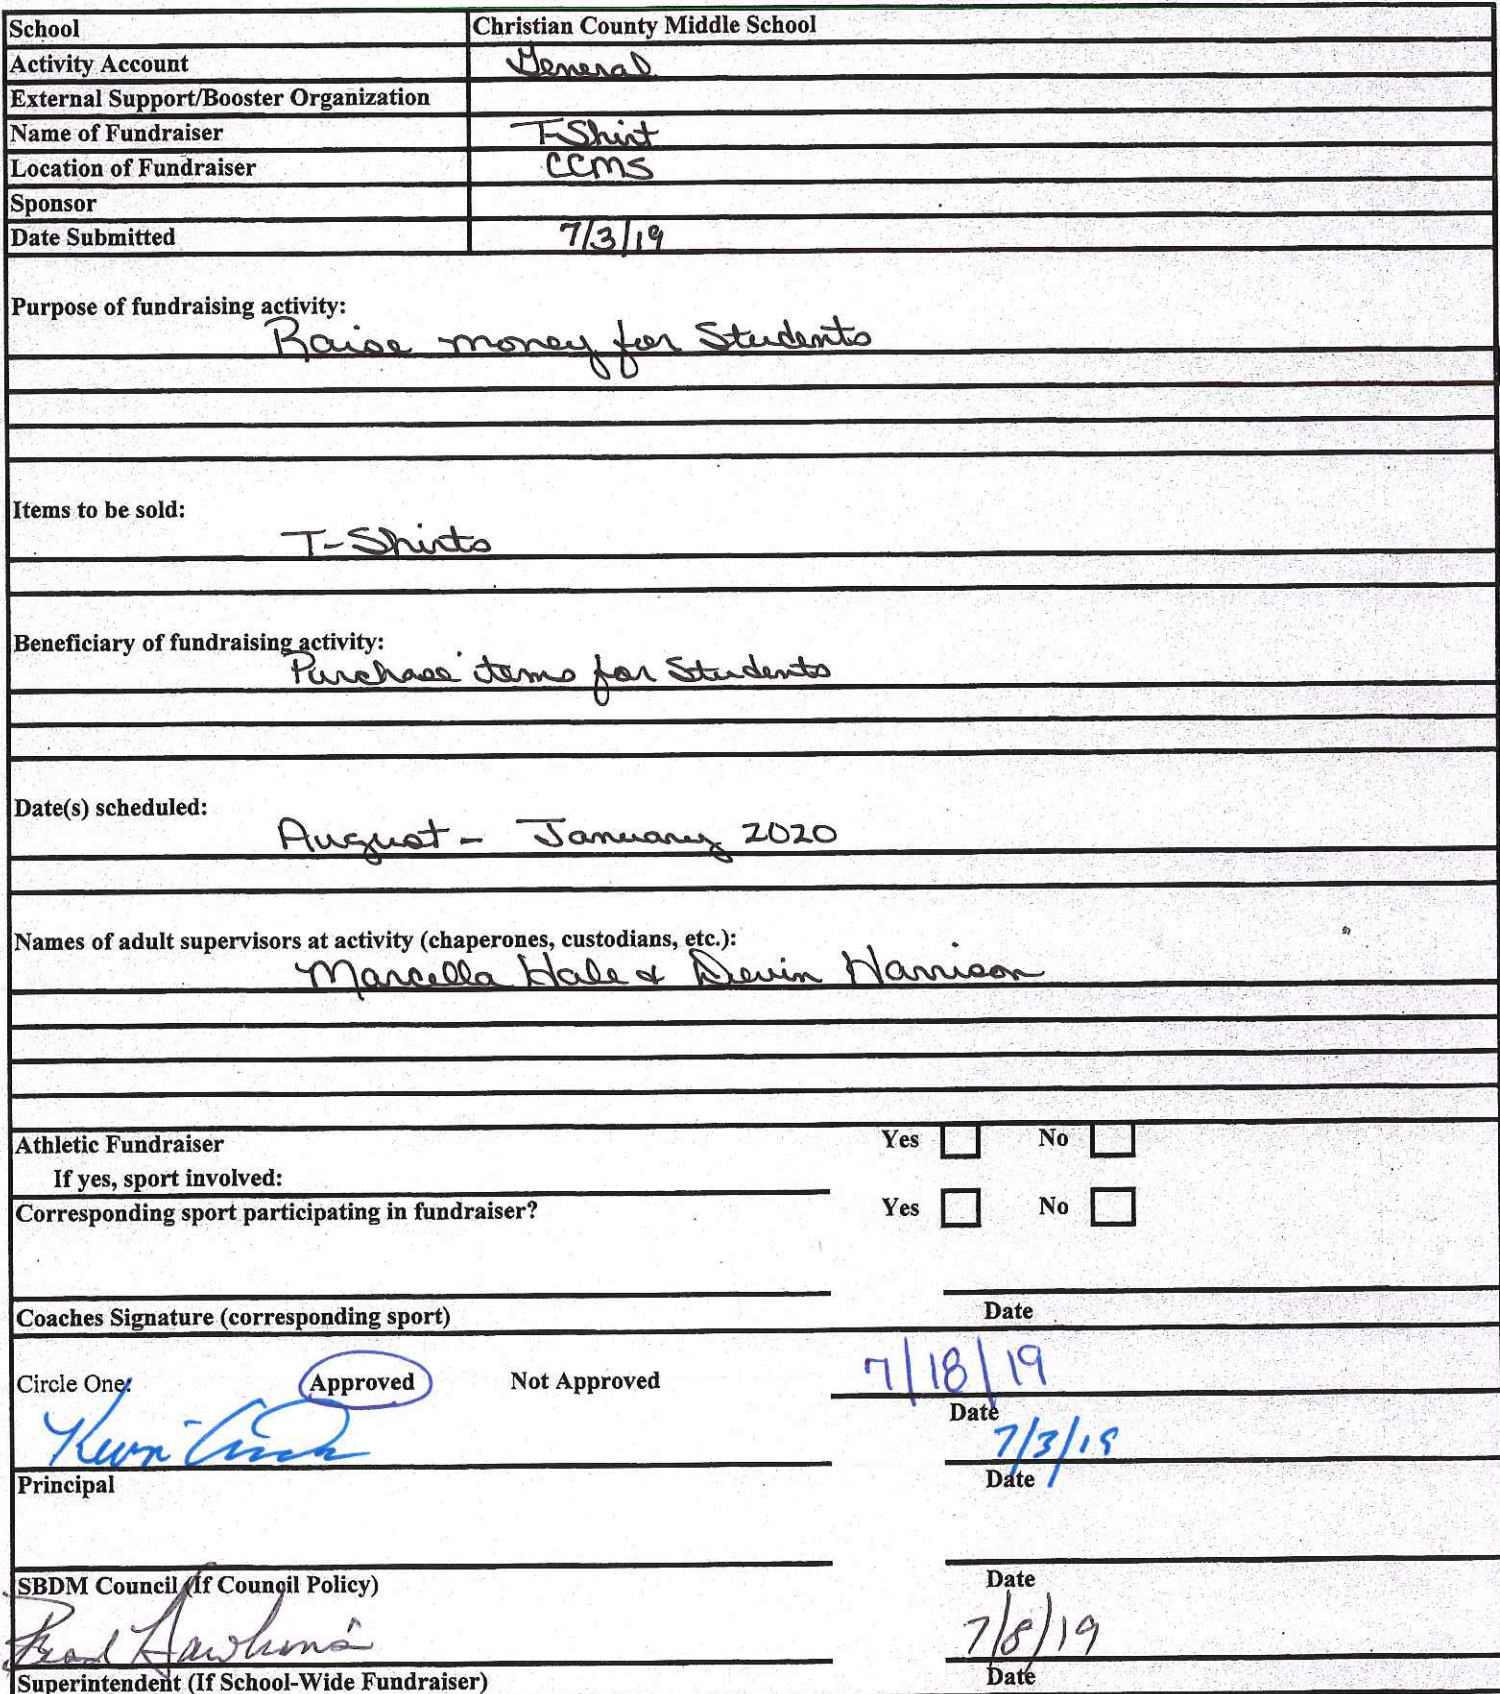 School Christian County Middle School
Activity Account General
External Support/Booster Organization
Name of Fundraiser T-Shirt
Location of Fundraiser CCMS
Sponsor
Date Submitted 7/3/19
Purpose of fundraising activity:
Raise money for Students
Items to be sold:
T-Shirts
Beneficiary of fundraising activity:
Purchase items for Students
Date(s) scheduled:
August - January 2020
Names of adult supervisors at activity (chaperones, custodians, etc.):
Marcella Hale & Devin Harrison
Athletic Fundraiser Yes No
If yes, sport involved:
Corresponding sport participating in fundraiser? Yes No
Coaches Signature (corresponding sport) Date
Circle One: Approved Not Approved 7/18/19
Date
Kevin 7/3/19
Principal Date
SBDM Council (If Council Policy) Date
Hawkins 7/8/19
Superintendent (If School-Wide Fundraiser) Date